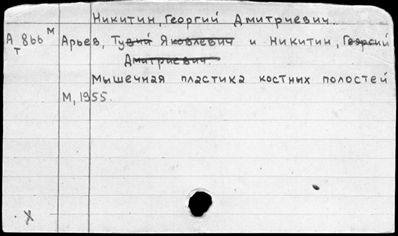 Никитин, Георгий Дмитриевич.
А 866 М Арьев, Тувий Яковлевич и Никитин, Георгий
Т
Дмитриевич.
Мышечная пластика костных полостей
М, 1955.
X